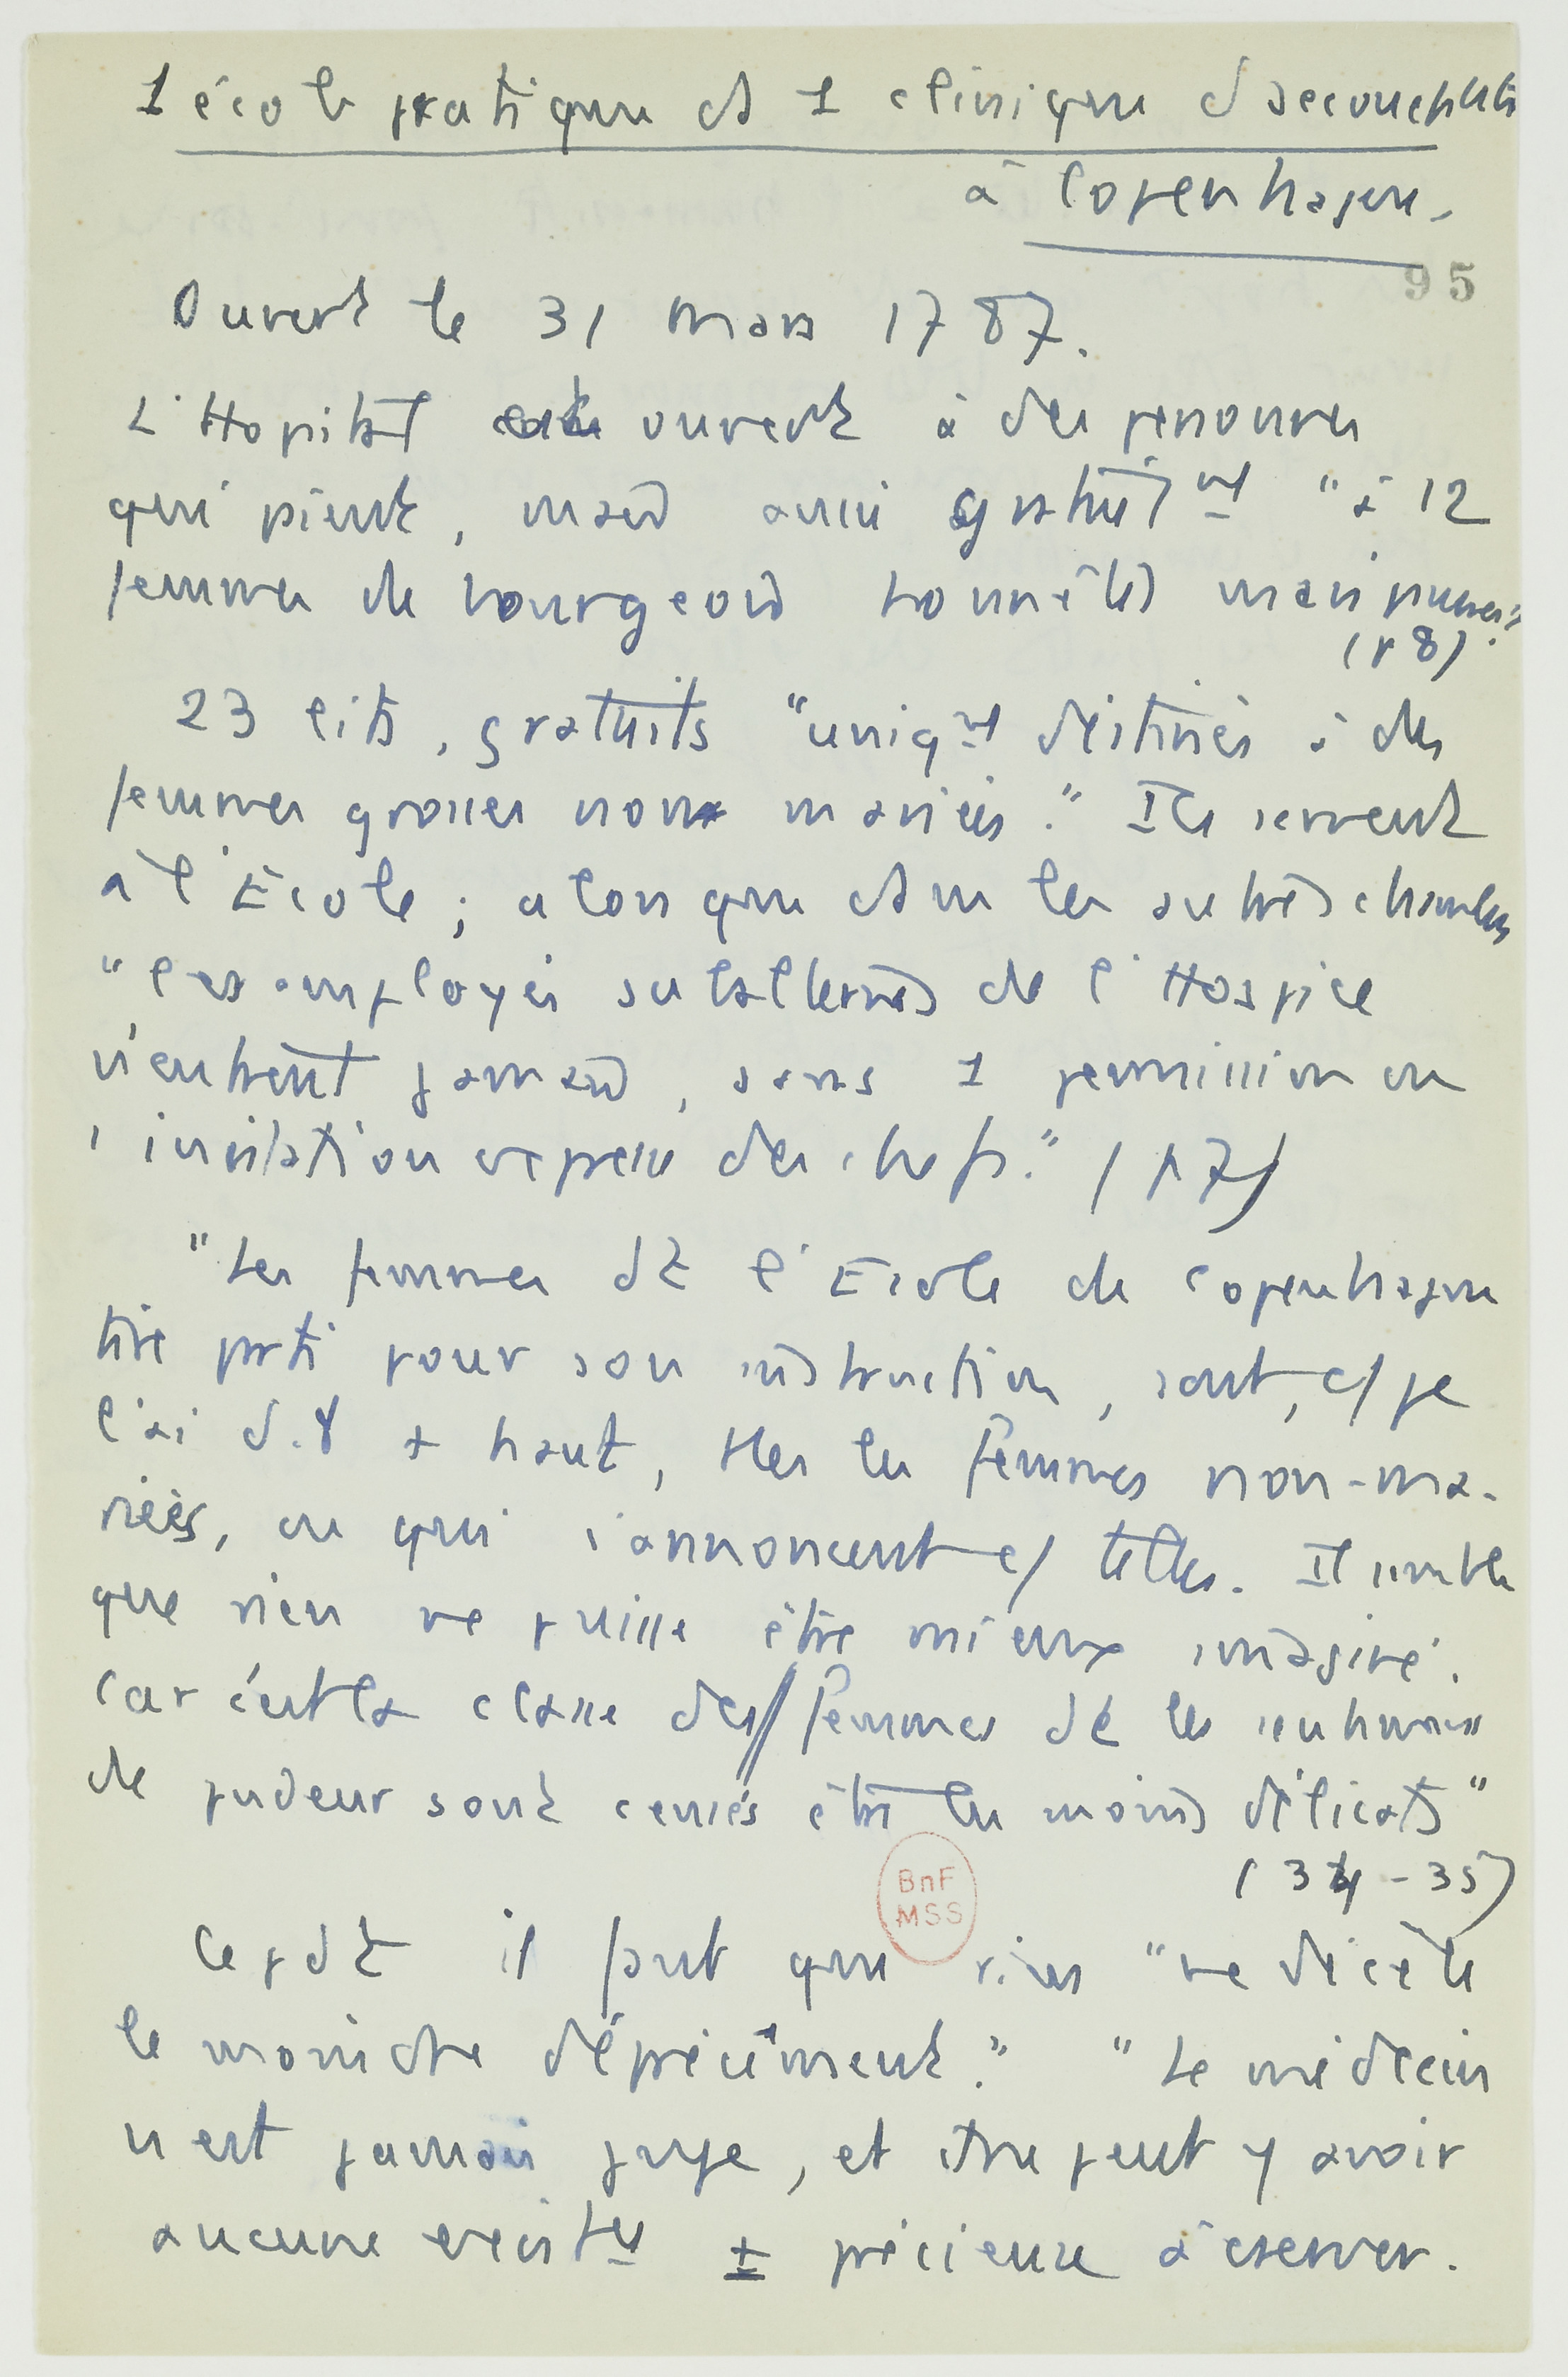 1 école pratique et 1 clinique d'accouchements
à Copenhague.
95
Ouvert le 31 mars 1787.
L'Hopital est ouvert à des personnes
qui paient, mais aussi gratuitmt "à 12
femmes de bourgeois honnêtes mais pauvres".
(p 8)
23 lits, gratuits "uniqmt destinés à des
femmes grosses non mariées." Ils servent
à l'Ecole ; alors que ds les autres chambres
"les employés subalternes de l'Hospice
n'entrent jamais, sans 1 permission ou
1 invitation expresse des chefs." (p 7)
"Les femmes dt l'Ecole de Copenhague
tire parti pour son instruction, sont, c/ je
l'ai d.j + haut, ttes les femmes non-ma-
riées, ou qui s'annoncent c/ telles. Il semble
que rien ne puisse être mieux imaginé.
car c'est la classe des // femmes dt les sentiments
de pudeur sont censés être les moins délicats"
(34-35)
BnF
MSS
Cepdt il faut que rien "ne décèle
le moindre dépréciment." "Le médecin
n'est jamais juge, et il ne peut y avoir
aucune
+ précieuse à